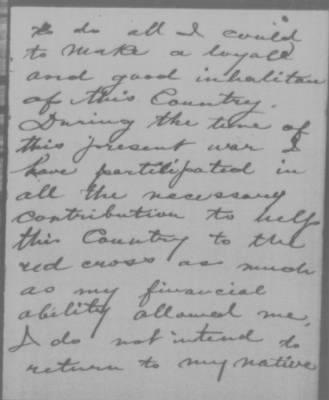 to do all I could
to make a loyall
and good inhabitan
of this Country.
During the time of
this present war I
have partilipated in
all the necessary
contribution to help
this Country to the
red cross as much
as my financial
ability allowed me,
I do not intend to
return to my native